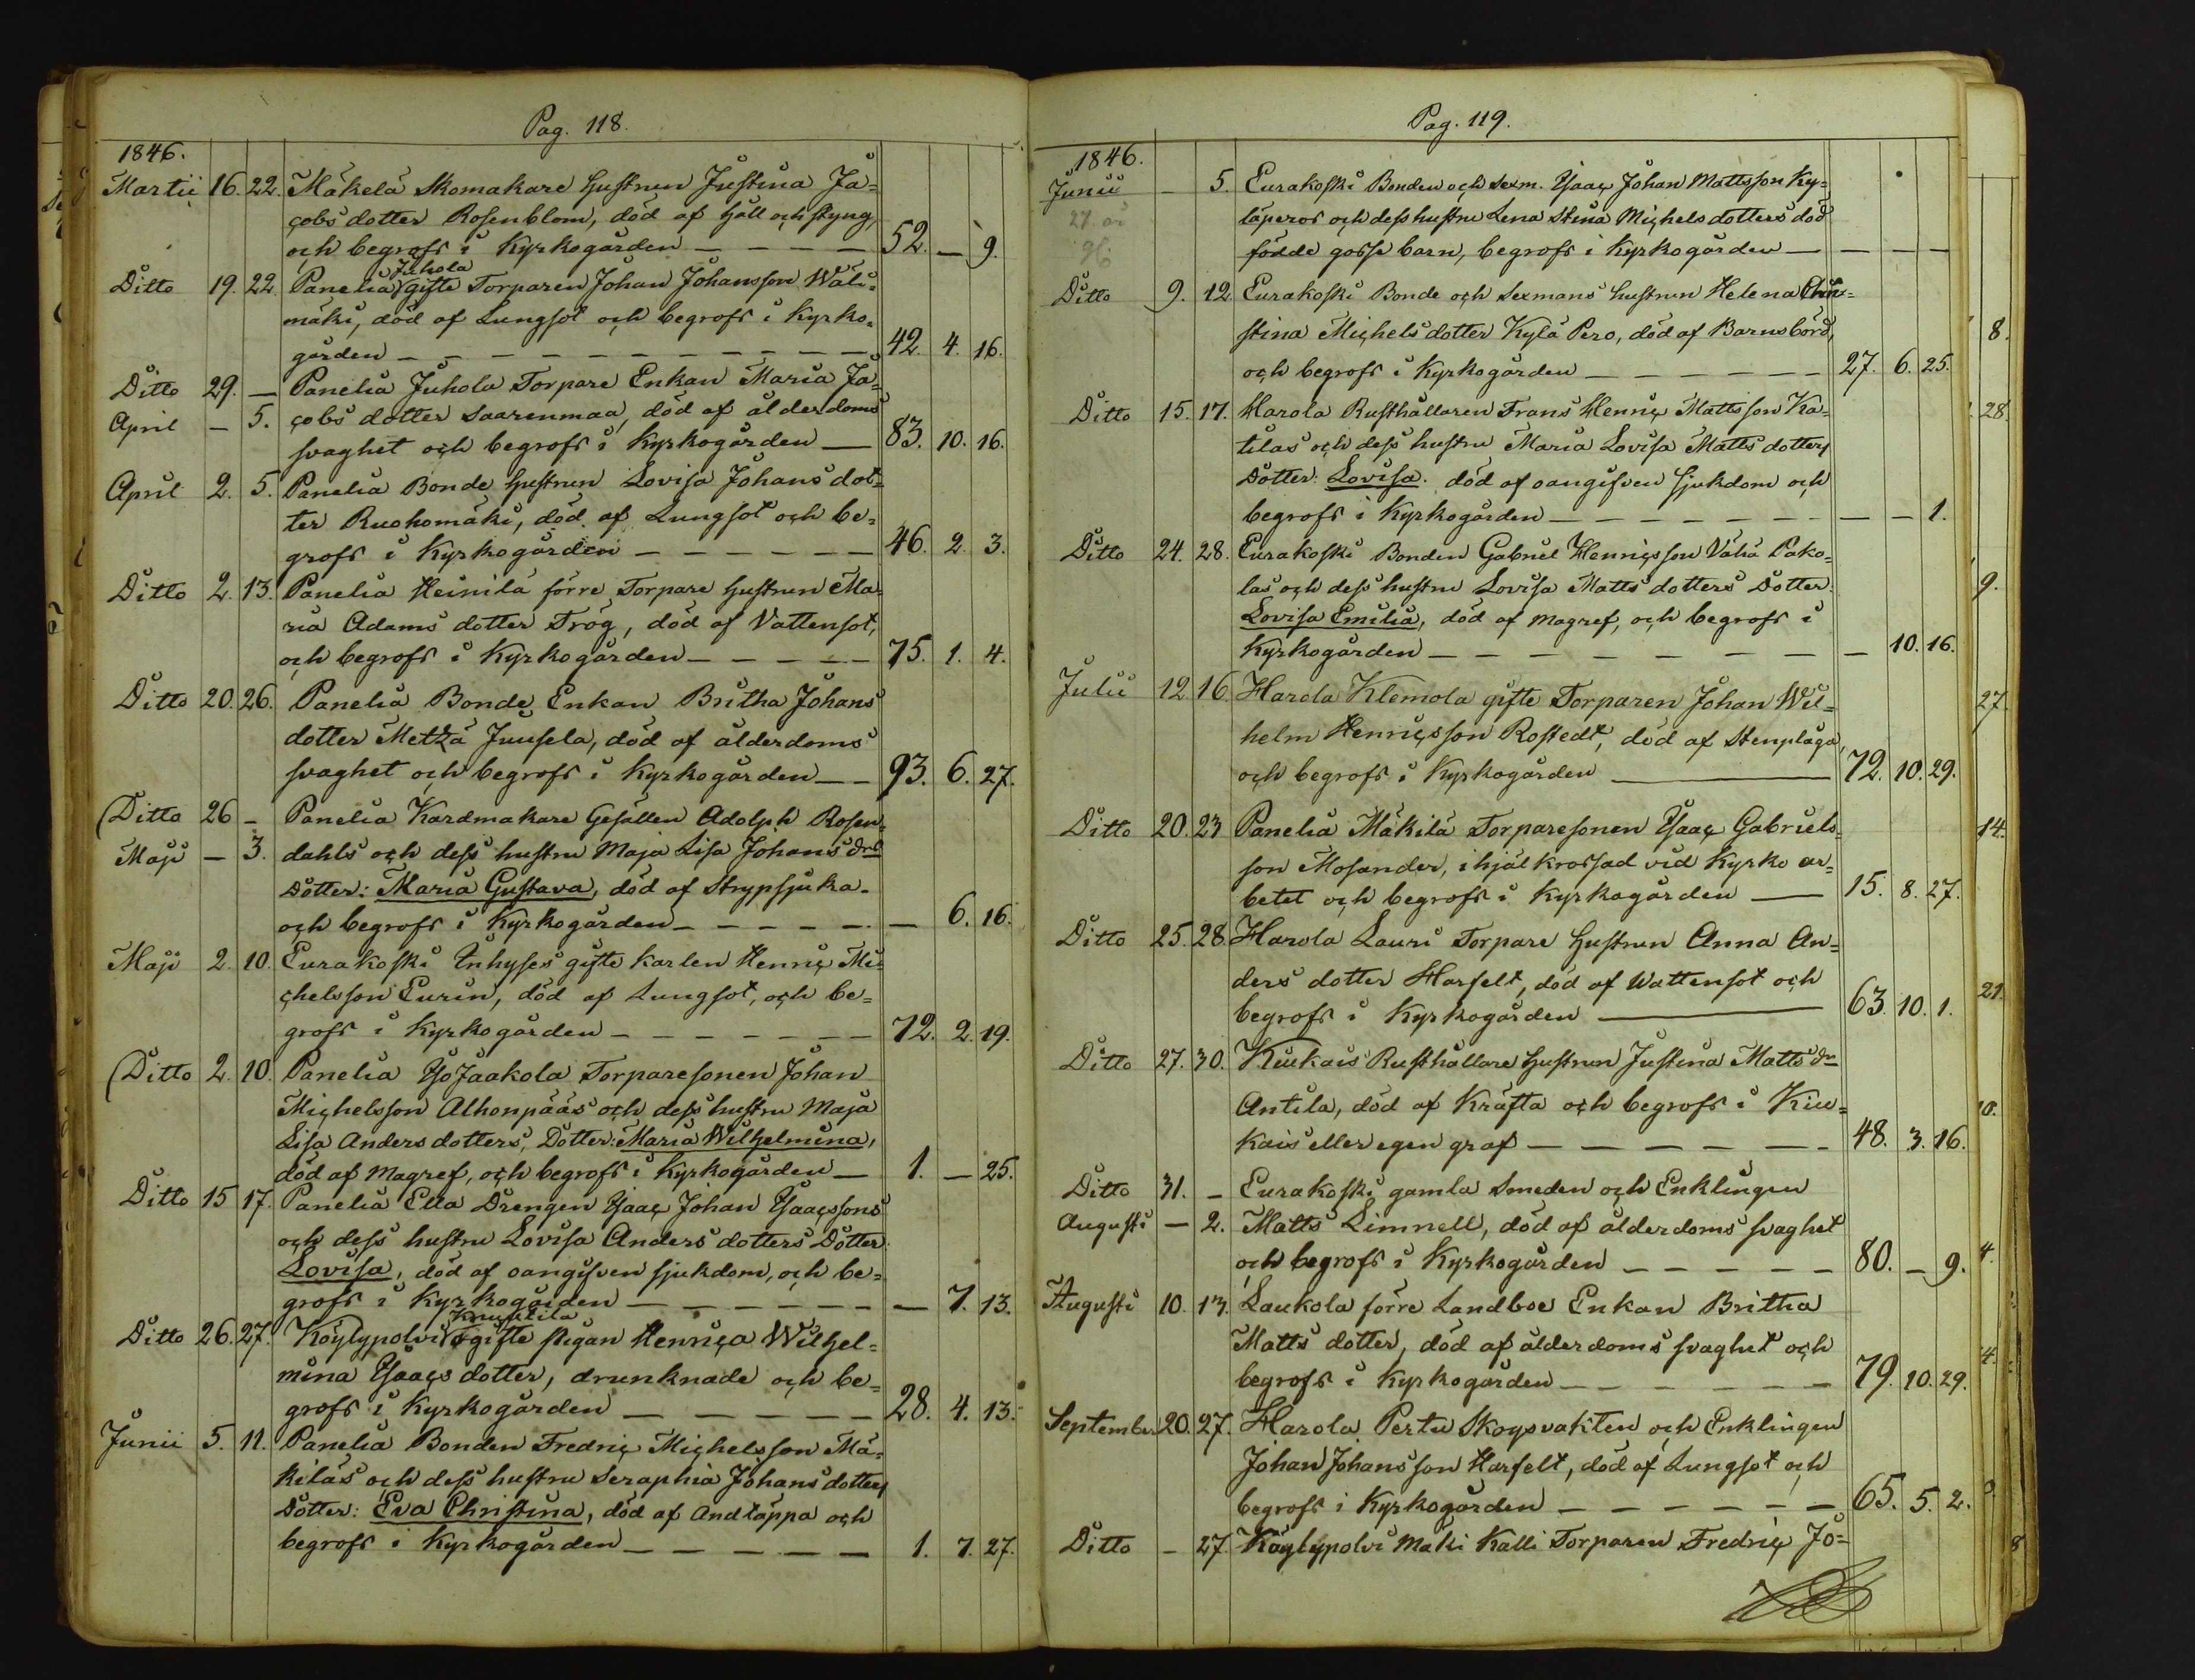 Pag. 118.
1846.
Martii 16. 22. Mäkelä Skomakare Hustrun Justina Ja=
cobs dotter Rosenblom, död af håll och styng,
och begrofs i Kyrkogården — — — — 52. — 9.
Juhola
Ditto 19. 22. Panelia gifte Torparen Johan Johansson Wäli=
mäki, död af Lungsot och begrofs i Kyrko=
gården — — — — — — — — — — 42. 4. 16.
Ditto 29. — Panelia Juhola Torpare Enkan Maria Ja=
April — 5. cobs dotter Saarenmaa, död af ålderdoms
svaghet och begrofs i Kyrkogården — 83. 10. 16.
April 2. 5. Panelia Bonde Hustrun Lovisa Johans dot=
ter Ruohomäki, död af Lungsot och be=
grofs i Kyrkogården — — — — — — 46. 2. 3.
Ditto 2. 13. Panelia Heinilä förre Torpare Hustrun Ma=
ria Adams dotter Trög, död af Vattensot,
och begrofs i Kyrkogården — — — — — 75. 1. 4.
Ditto 20. 26. Panelia Bonde Enkan Britha Johans
dotter Metzä Juusela, död af ålderdoms
svaghet och begrofs i Kyrkogården — — 93. 6. 27.
Ditto 26 — Panelia Kardmakare Gesällen Adolph Rosen=
Maji — 3. dahls och dess hustru Maja Lisa Johans drs
Dotter: Maria Gustava, död af Strypsjuka
och begrofs i Kyrkogården — — — — — — 6. 16.
Maji 2. 10. Eurakoski Inhyses gifte karlen Henric Mi=
chelsson Eurin, död af Lungsot, och be=
grofs i Kyrkogården — — — — — — 72. 2. 19.
Ditto 2. 10. Panelia YsoJaakola Torparesonen Johan
Michelsson Alhonpääs och dess hustru Maja
Lisa Anders dotters, Dotter: Maria Wilhelmina,
död af Magref, och begrofs i Kyrkogården — 1. — 25.
Ditto 15 17. Panelia Ella Drengen Ysaac Johan Ysaacssons
och dess hustru Lovisa Anders dotters Dotter
Lovisa, död af oangifven sjukdom, och be=
grofs i Kyrkogården — — — — — — — 7. 13.
Knuutila
Ditto 26. 27. Köylypolvi ogifte pigan Henrica Wilhel=
mina Ysaacs dotter, drunknade och be=
grofs i Kyrkogården — — — — — 28. 4. 13.
Junii 5. 11. Panelia Bonden Fredric Michelsson Mä=
kiläs och dess hustru Seraphia Johans dotters
Dotter: Eva Christina, död af Andtäppa och
begrofs i Kyrkogården — — — — — 1. 7. 27.
Pag. 119.
1846.
Junii — 5. Eurakoski Bonden och Sexm. Ysaac Johan Mattsson Ky=
läperos och dess hustru Lena Stina Michels dotters död
födde gosse barn, begrofs i Kyrkogården — — — —
Ditto 9. 12. Eurakoski Bonde och Sexmans hustrun Helena Chri=
stina Michels dotter Kylä Pero, död af Barnsbörd,
och begrofs i Kyrkogården — — — — — 27. 6. 25.
Ditto 15. 17. Harola Rusthållaren Frans Henric Mattsson Ka=
tilas och dess hustru Maria Lovisa Matts dotters
Dotter: Lovisa. död af oangifven sjukdom och
begrofs i Kyrkogården — — — — — — — — 1.
Ditto 24. 28. Eurakoski Bonden Gabriel Henricsson Vähä Pako=
las och dess hustru Lovisa Matts dotters Dotter:
Lovisa Emilia, död af magref, och begrofs i
Kyrkogården — — — — — — — — 10. 16.
Julii 12. 16. Harola Klemola gifte Torparen Johan Wil=
helm Henricsson Rostedt, död af Stenplåga,
och begrofs i Kyrkogården — 72. 10. 29.
Ditto 20. 23 Panelia Mäkilä Torparesonen Ysaac Gabriels=
son Mosander, ihjäl krossad vid Kyrko ar=
betet och begrofs i Kyrkogården — 15. 8. 27.
Ditto 25. 28. Harola Lauri Torpare Hustrun Anna An=
ders dotter Harfelt, död af Wattensot och
begrofs i Kyrkogården — 63. 10. 1.
Ditto 27. 30. Kiukais Rusthållare Hustrun Justina Matts dr
Antila, död af Kräfta och begrofs i Kiu=
kais eller egen graf — — — — — — 48. 3. 16.
Ditto 31. — Eurakoski gamla Smeden och Enklingen
Augusti — 2. Matts Limnell, död af ålderdoms svaghet
och begrofs i Kyrkogården — — — — — 80. — 9.
Augusti 10. 13. Laukola förre Landboe Enkan Britha
Matts dotter, död af ålderdoms svaghet och
begrofs i Kyrkogården — — — — — — 79. 10. 29.
September 20. 27. Harola Pertu Skogsvakten och Enklingen
Johan Johansson Harfelt, död af Lungsot och
begrofs i Kyrkogården — — — — — — 65. 5. 2.
Ditto — 27. Köylypolvi Mäki Kalli Torparen Fredric Jo=